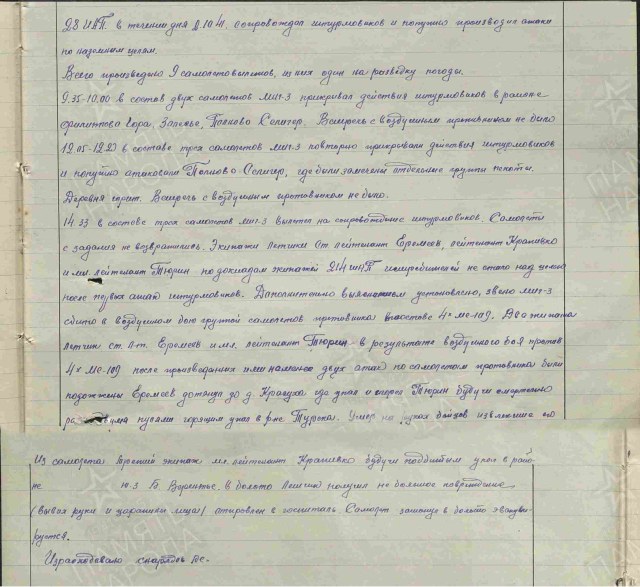 28 ИАП. в течении дня 8.10.41. сопровождал штурмовиков и попутно производил атаки
по наземным целям.
Всего произведено 9 самолетовылетов, из них один на разведку погоды.
9.35-10.00 в составе двух самолетов МИГ-3 прикривал действия штурмовиков в районе
Филиппова Гора, Заленье, Полново Селигер. Встречь с воздушным противником не было
12.05-12.50 в составе трех самолетов МИГ-3 повторно прикривали действия штурмовиков
и попутно атаковали Полново-Селигер, где были замечены отдельные группы пехоты.
Деревня горит. Встречь с воздушным противником не было.
14.33 в составе трех самолетов МИГ-3 вылетел на сопровождение штурмовиков. Самолеты
с задания не возвратились. Экипажи летчики Ст. лейтенант Еремеев, лейтенант Крапивко
и мл. лейтенант Тюрин по докладам экипажей 214 ШАП истребителей не стало над целью
после первых атак штурмовиков. Дополнительно установлено, звено МИГ-3
сбито в воздушном бою группой самолетов противника в составе 4х МЕ-109. Два экипажа
летчик ст. л-т. Еремеев и мл. лейтенант Тюрин в результате воздушного боя против
4х МЕ-109 после произведенных ими двух атак по самолетам противника были
подожжены Еремеев дотянул до д. Красуха где упал и сгорел Тюрин будучи смертельно
пулями горящим упал в р-не Турская. Умер на руках бойцов извлекшие его
Из самолета. Третий экипаж мл. лейтенант Крапивко будучи подбитым упал в райо
не ю.з Б. Вороньое. В болото Летчик получил не большое повреждение
(вывих руки и царапини лица) отправлен в госпиталь Самолет затонув в болото эвакуи-
руется.
Израсходовано снарядов РС.